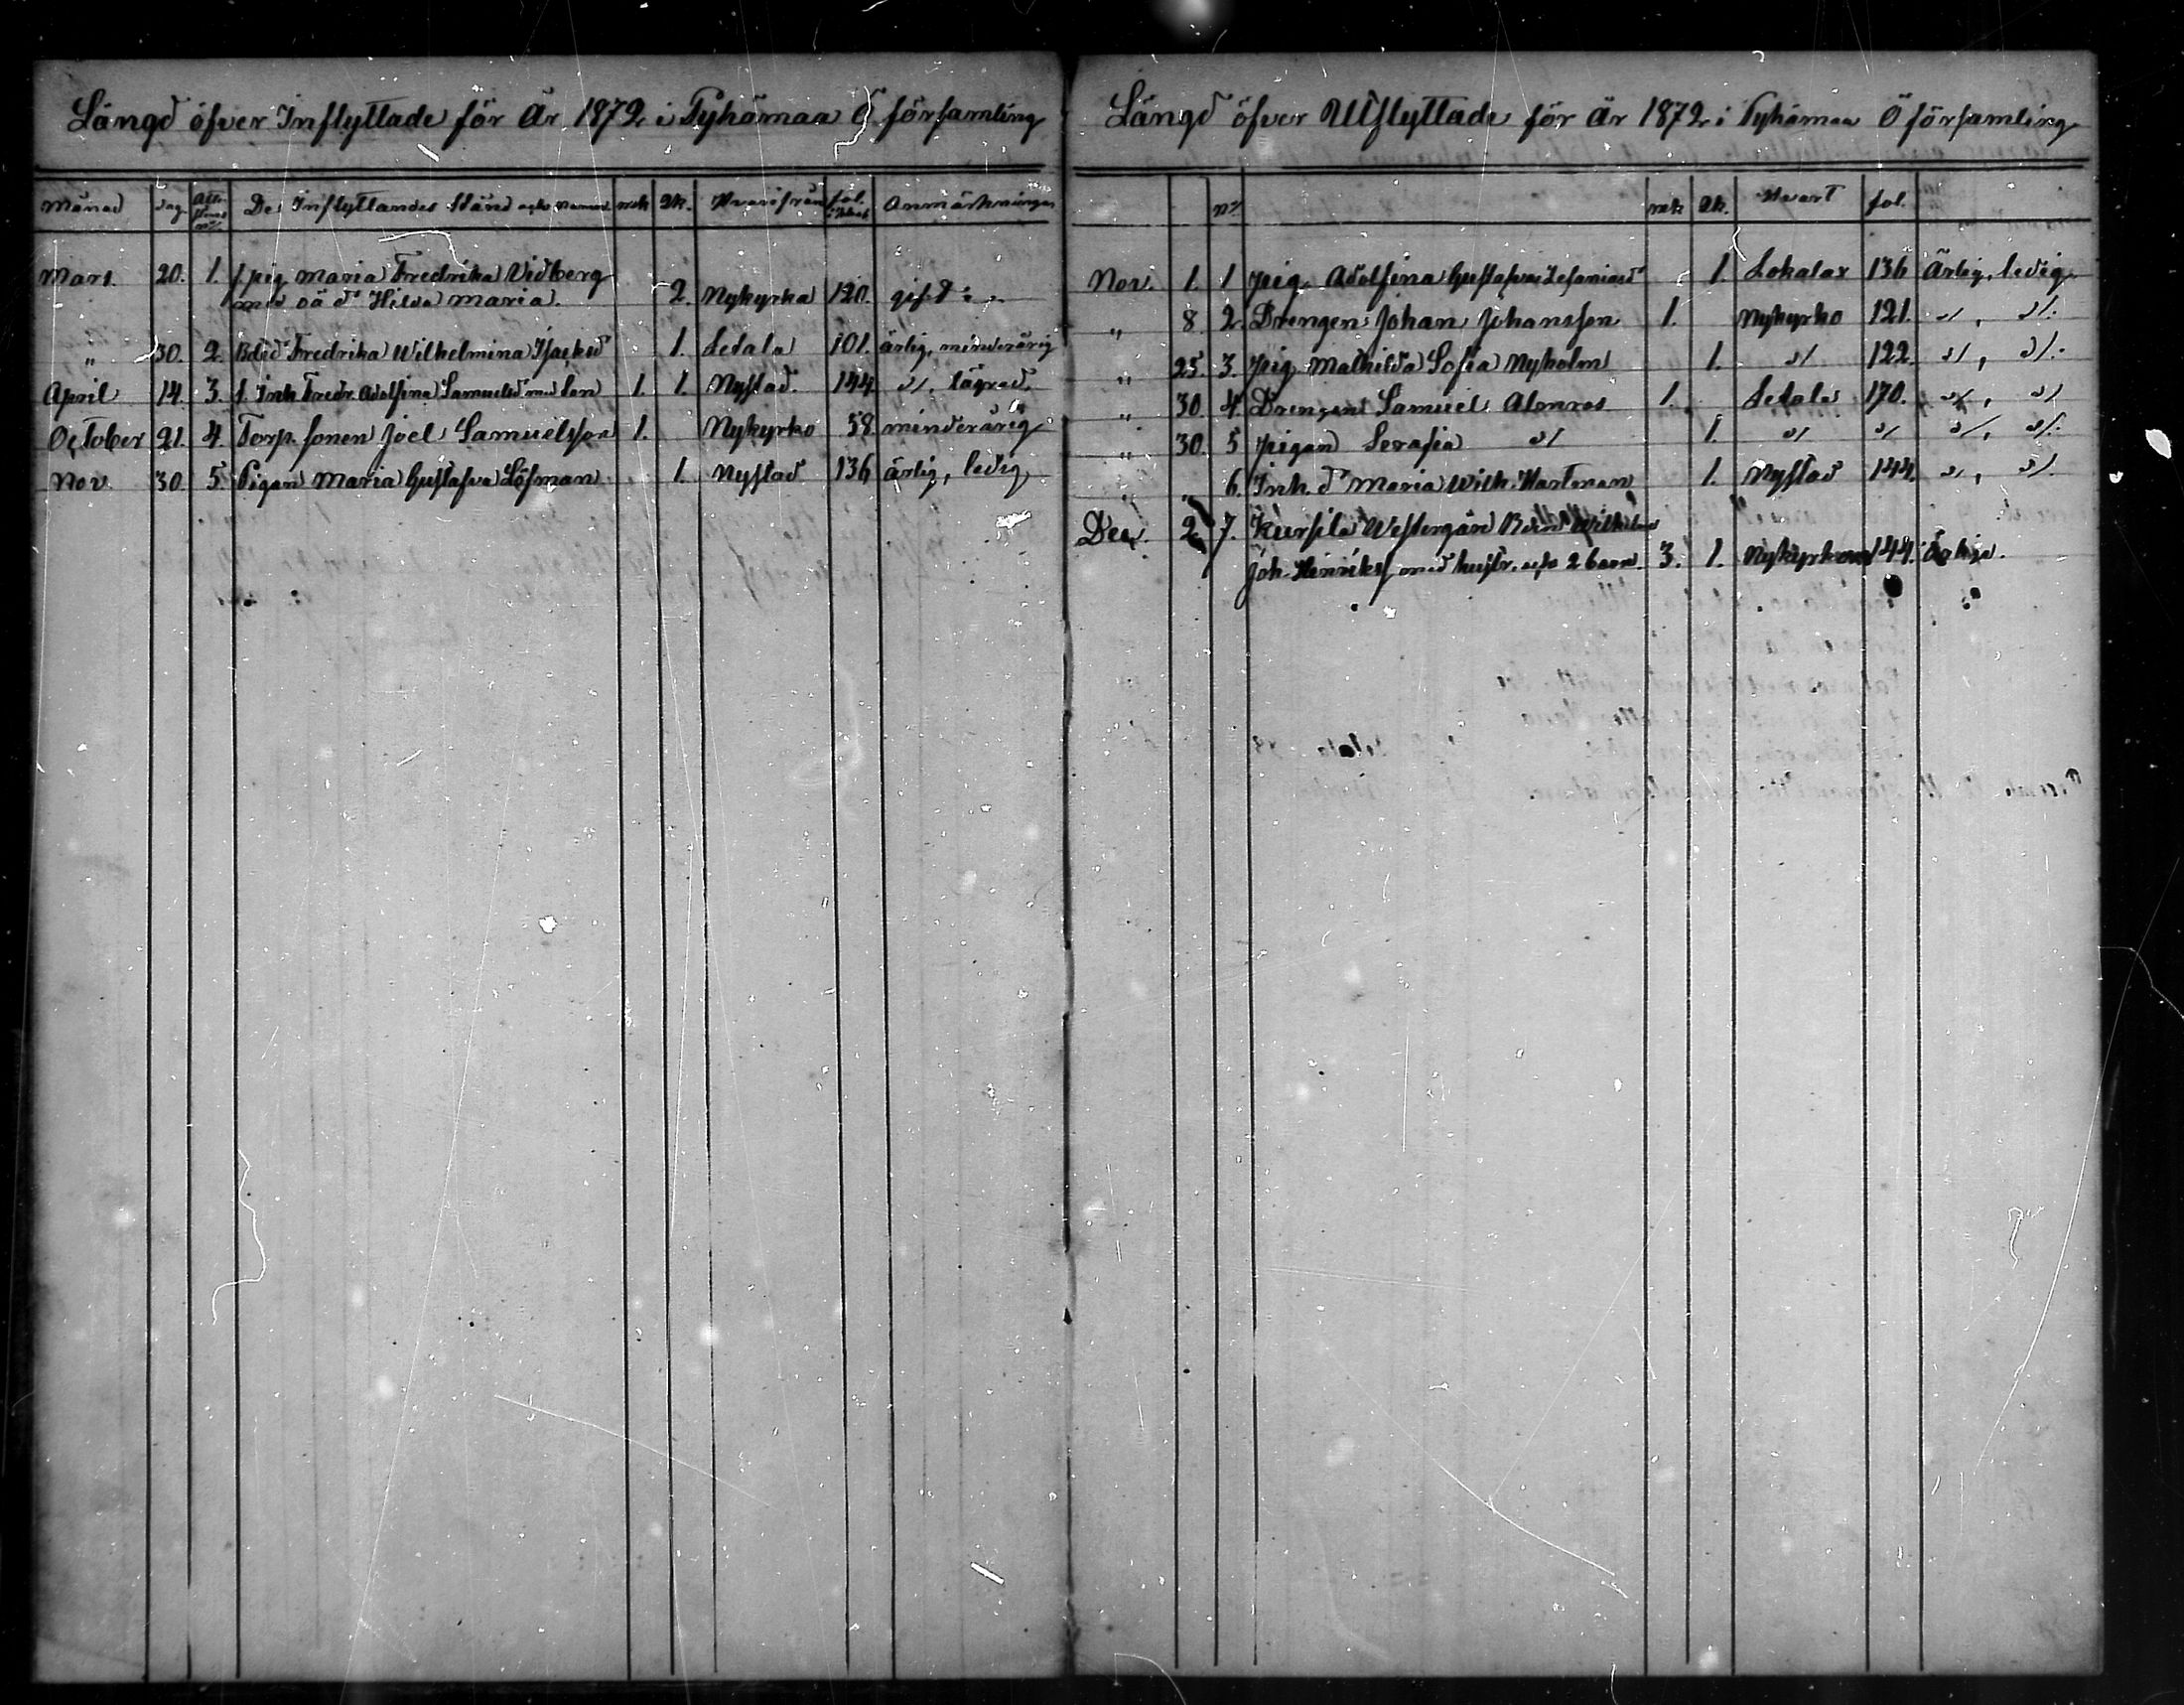 Längd öfver Inflyttade för År 1872 i Pyhämaa Ö församling
Månad dag Attestens No De Inflyttandes Stånd och namn mk Qk. Hvarifrån fol. Anmärkningar
Mars. 20. 1. f. pig Maria Fredrika Vidberg
med oä dr Hilda Maria. 2. Nykyrka 120. gift
„ 30. 2. Bdr Fredrika Wilhelmina Isacksdr 1. Letala 101. ärlig, minderårig
April 14. 3. f. Inh Fredr. Adolfina Samuelsdr med son 1. 1. Nystad. 144 lägrad.
October 21. 4. Torp. sonen Joel Samuelsson 1. Nykyrko 58. minderårig
Nov. 30. 5. Pigan Maria Gustafva Löfman 1. Nystad 136 ärlig, ledig
Längd öfver Utflyttade för År 1872 i Pyhämaa Ö församling
No mk Qk. Hvart fol.
Nov. 1. 1 pig. Adolfina Gustafva 1. Lokalax 136 Ärlig, ledig
„ 8. 2. Drengen Johan Johansson 1. Nykyrko 121. „ , „
„ 25. 3. pig Mathilda Sofia Nyholm 1. „ 122. „ , „
„ 30. 4. Drengen Samuel Almros 1. Letala 170. „ , „
„ 30. 5 pigan Serafia „ 1. „ „ „ , „
„ „ 6. Inh. dr Maria Wilh. Hartman 1. Nystad 144. „ , „
Dec. 2 7. Kursila Westergård
Joh. Henriks. med hustr. och 2 barn. 3. 1. Nykyrko 144.